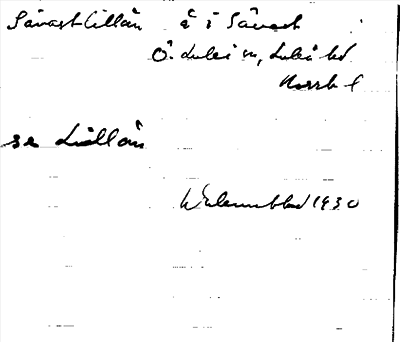 Sävast lillån å i Sävast
Ö. Luleå sn, Luleå hd
Norrb l
se Lillån
Wahlenblad 1930